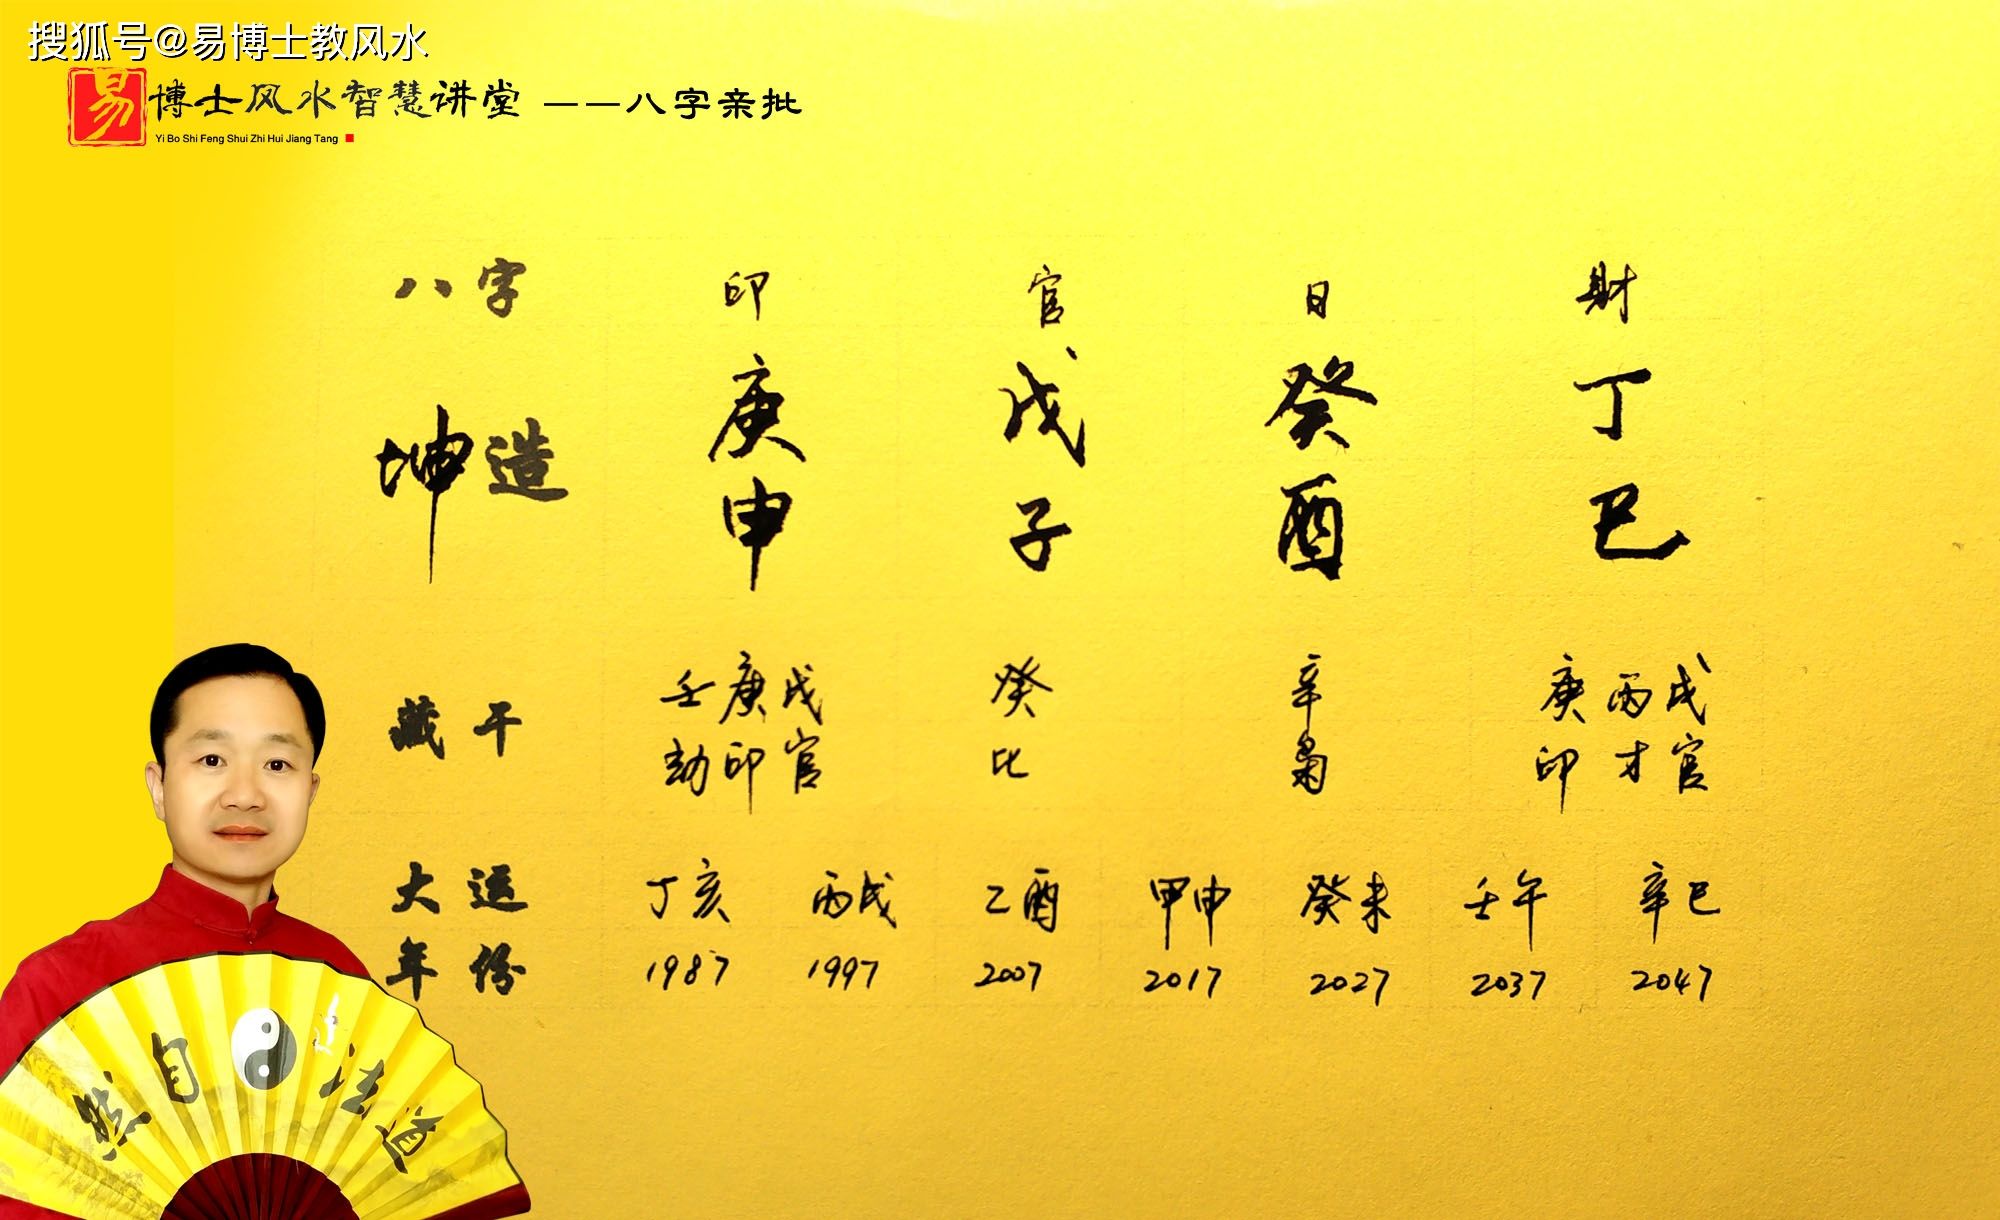 搜狐号@易博士教风水
易 博士风水智慧讲堂 ——八字亲批
Yi Bo Shi Feng Shui Zhi Hui Jiang Tang
八字 印 官 日 财
坤造 庚 戊 癸 丁
申 子 酉 巳
藏干 壬庚戊 癸 辛 庚丙戊
劫印官 比 枭 印才官
大运 丁亥 丙戌 乙酉 甲申 癸未 壬午 辛巳
年份 1987 1997 2007 2017 2027 2037 2047
然自法道